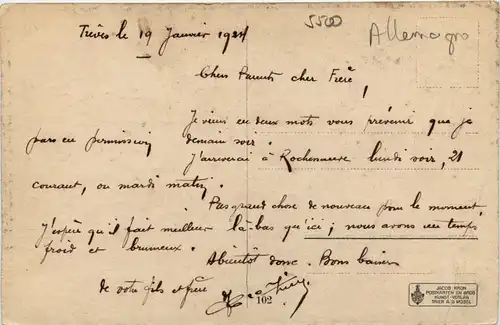 Trèves le 19 Janvier 1924
5500
Allemagne
Chers Parents cher Frère,
Je viens en deux mots vous prévenir que je
pars en permission demain soir.
J'arriverai à Rochemaure lundi soir, 21
courant, ou mardi matin.
Pas grand chose de nouveau pour le moment,
J'espère qu'il fait meilleur là-bas qu'ici; nous avons un temps
froid et brumeux.
A bientôt donc. Bons baisers
de votre fils et frère
102
JACOB KRON
POSTKARTEN EN GROS
KUNST-VERLAG
TRIER A/D MOSEL